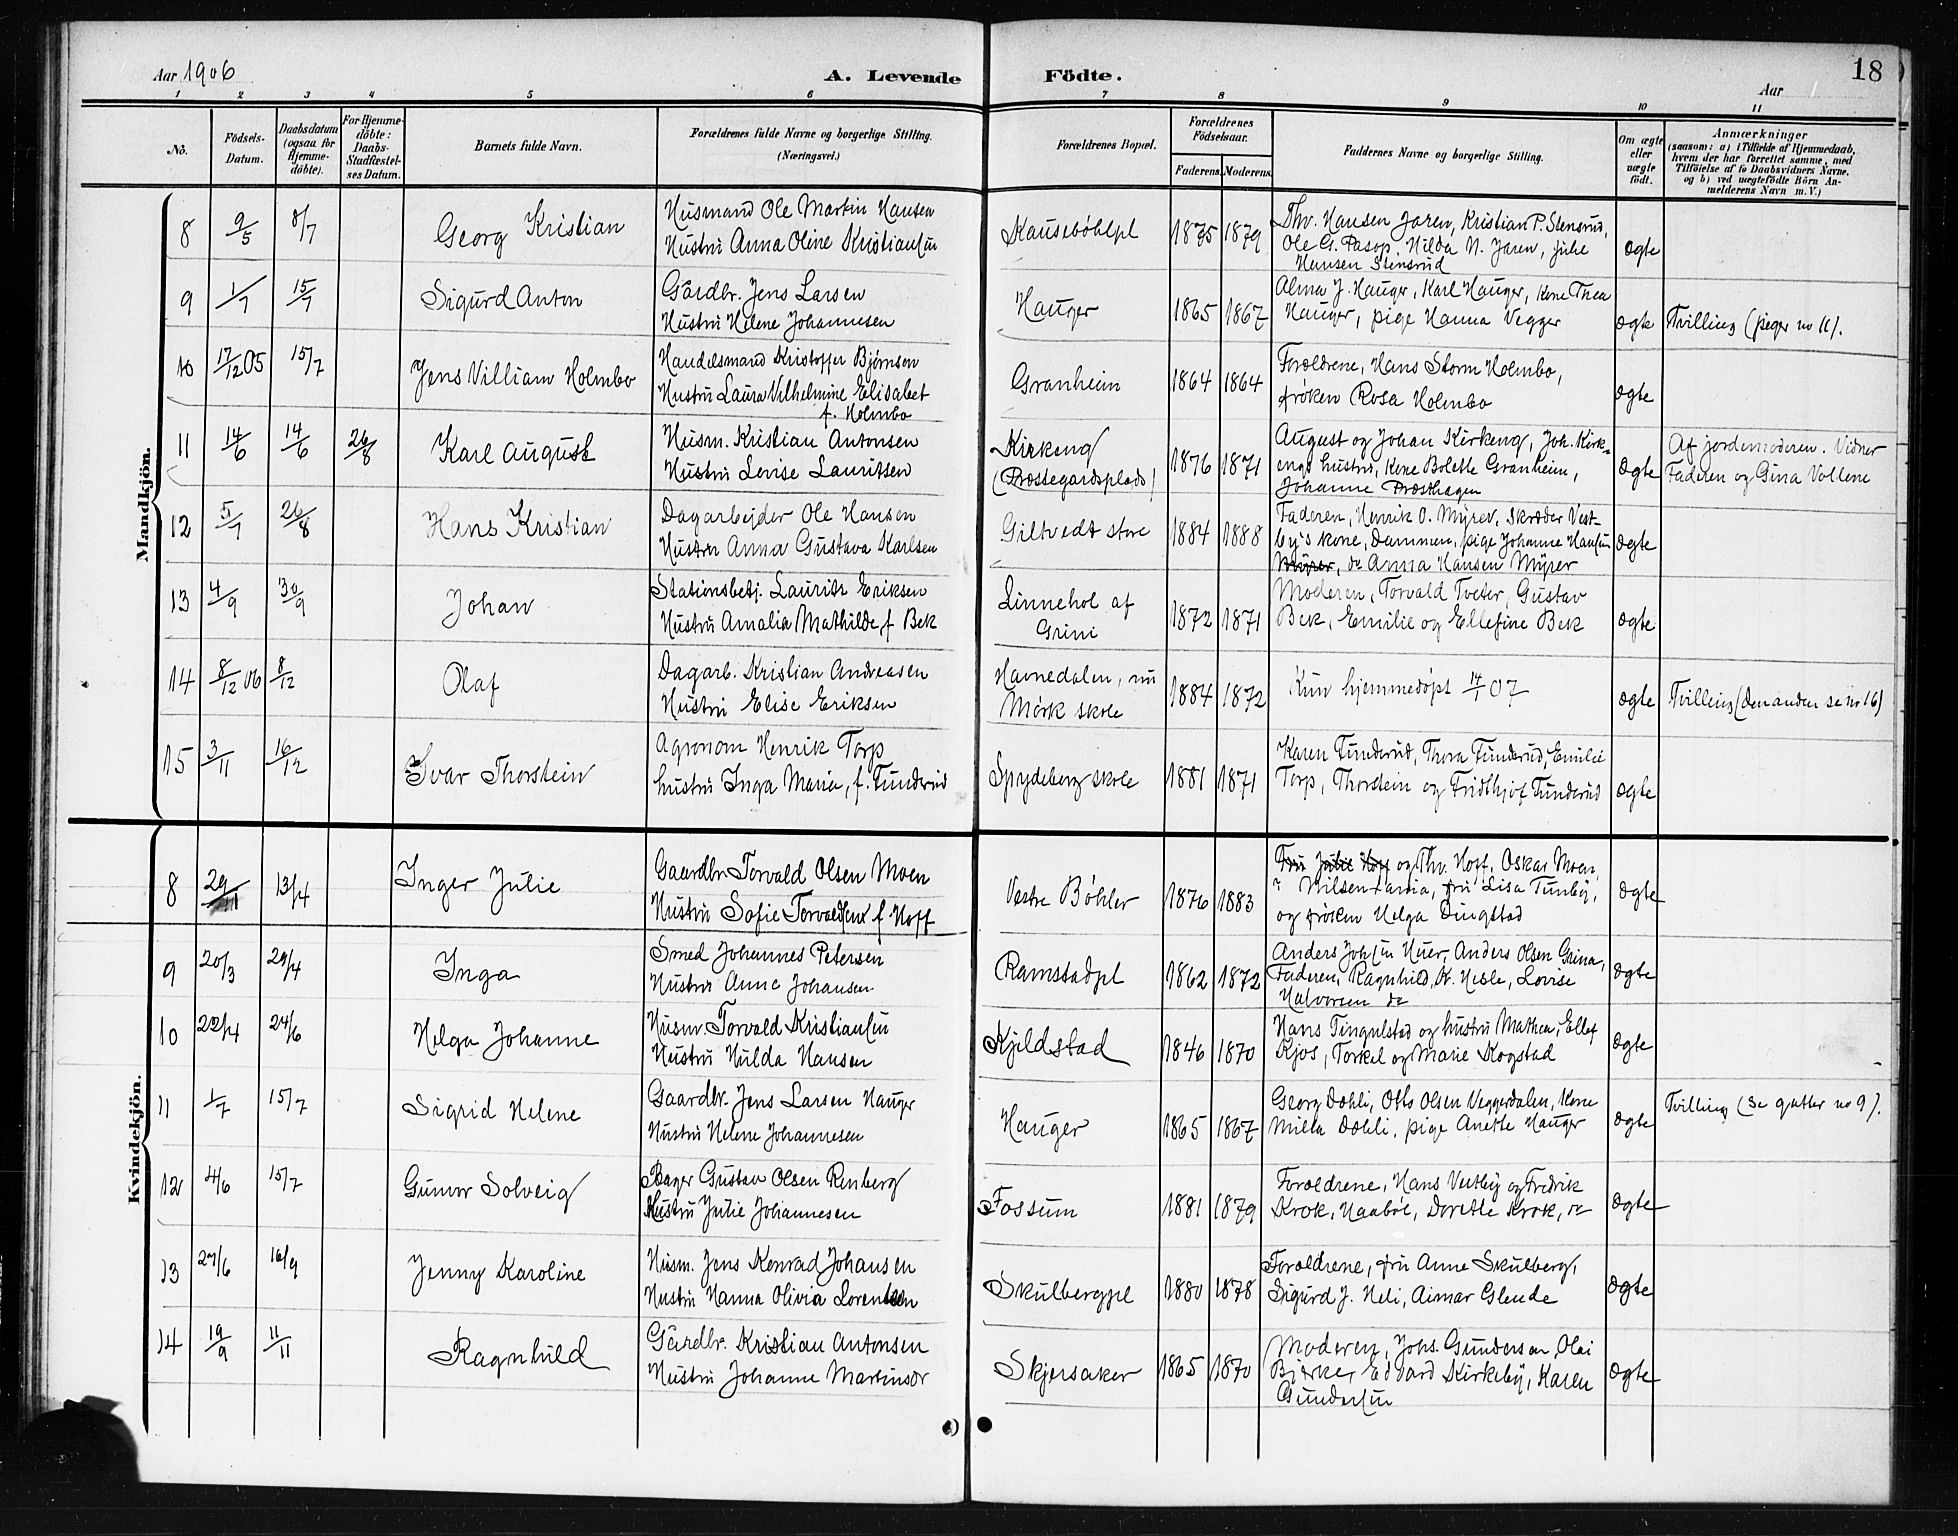 Aar 1906
A. Levende Födte.
Aar
18
1 2 3 4 5 6 7 8 9 10 11
No.
Födsels-Datum.
Daabsdatum (ogsaa for Hjemme-döbte).
For Hjemme-döbte: Daabs-Stadfæstel-ses Datum.
Barnets fulde Navn.
Forældrenes fulde Navne og borgerlige Stilling. (Næringsvei.)
Forældrenes Bopæl.
Forældrenes Födselsaar.
Faderens. Moderens.
Faddernes Navne og borgerlige Stilling.
Om ægte eller uægte födt.
Anmærkninger
(saasom: a) i Tilfælde af Hjemmedaab, hvem der har forrettet samme, med Tilföielse af to Daabsvidners Navne, og b) ved uægtefödte Börn An-melderens Navn m. V.)
Mandkjön.
8 9/5 8/7 Georg Kristian
Husmand Ole Martin Hansen
Hustru Anna Oline Kristiansen
Kausebøhlpl 1875 1879
Thv. Hansen Jaren, Kristian P. Stensrud,
Ole G. Pasop, Hilda N. Jaren, Julie
Hansen Stensrud
ægte
9 1/7 15/7 Sigurd Anton
Gårdbr. Jens Larsen
Hustru Helene Johannesen
Hauger 1865 1867
Alma J. Hauger, Karl Hauger, kone Thea
Hauger, pige Hanna Vegger
ægte
Tvilling (piger no 11).
10 17/12 05 15/7 Jens Villiam Holmbo
Handelsmand Kristoffer Bjørnsen
Hustru Laura Vilhelmine Elisabet
f. Holmbo
Granheim 1864 1864
Forældrene, Hans Storm Holmbo,
frøken Rosa Holmbo
ægte
11 14/6 14/6 26/8 Karl August
Husm. Kristian Antonsen
Hustru Lovise Lauritsen
Kirkeng
(Præstegårdsplads) 1876 1871
August og Johan Kirkeng, Joh. Kirk-
engs hustru, kone Bolette Granheim,
Johanne Præsthagen
ægte
Af jordemoderen. Vidner
Faderen og Gina Vollene
12 5/7 26/8 Hans Kristian
Dagarbejder Ole Hansen
Hustru Anna Gustava Karlsen
Giltvedt store 1884 1888
Faderen, Henrik O. Myrer, skræder Vest-
by's kone, Dammen, pige Johanne Hansen
Myrer, do Anna Hansen Myrer
ægte
13 4/9 30/9 Johan
Stationsbetj. Lauritz Eriksen
Hustru Amalia Mathilde, f Bek
Linnehol af
Grini 1872 1871
Moderen, Torvald Tveter, Gustav
Bek, Emilie og Ellefine Bek
ægte
14 8/12 06 8/12 Olaf
Dagarb. Kristian Andreasen
Hustru Elise Eriksen
Havnedalen, nu
Mørk skole 1884 1872
Kun hjemmedøpt 14/1 07
ægte
Tvilling (den anden se nr 16)
15 3/11 16/12 Ivar Thorstein
Agronom Henrik Torp
hustru Inga Maria, f. Funderud
Spydeberg skole 1881 1871
Karen Funderud, Thora Funderud, Emilie
Torp, Thorstein og Fridthjof Funderud
ægte
Kvindekjön.
8 29/11 13/4 Inger Julie
Gaardbr Torvald Olsen Moen
Hustru Sofie Torvaldsen f. Hoff
Vestre Bøhler 1876 1883
Fru Julie Hoff og Thv. Hoff, Oskar Moen,
fru Lisa Tunby,
og frøken Helga Dingstad
ægte
9 20/3 29/4 Inga
Smed Johannes Petersen
Hustru Anne Johansen
Ramstadpl 1862 1872
Anders Johsen Huer, Anders Olsen Grina,
Faderen, Ragnhild, Lovise
Halvorsen do
ægte
10 22/4 24/6 Helga Johanne
Husm. Torvald Kristiansen
Hustru Hulda Hansen
Kjeldstad 1846 1870
Hans Tingulstad og hustru Mathea, Ellef
Kjos, Torkel og Marie Kogstad
ægte
11 1/7 15/7 Sigrid Helene
Gaardbr. Jens Larsen Hauger
Hustru Helene Johannesen
Hauger 1865 1867
Georg Dæhli, Otto Olsen Veggerdalen, kone
Milla Dæhli, pige Anette Hauger
ægte
Tvilling (se gutter no 9).
12 4/6 15/7 Gunvor Solveig
Bager Gustav Olsen Renberg
Hustru Julie Johannesen
Fossum 1881 1879
Forældrene, Hans Vestby og Fredrik
Krok, Haabøl, Dorette Krok, do
ægte
13 27/6 16/9 Jenny Karoline
Husm. Jens Konrad Johansen
Hustru Hanna Olivia Lorentsen
Skulbergpl 1880 1878
Forældrene, fru Anne Skulberg,
Sigurd J. Heli, Aimar Glende
ægte
14 19/9 11/11 Ragnhild
Gårdbr. Kristian Antonsen
Hustru Johanne Martinsdr
Skjersaker 1865 1870
Moderen, Johs. Gundersen, Olai
Bjerke, Edvard Kirkeby, Karen
Gundersen
ægte